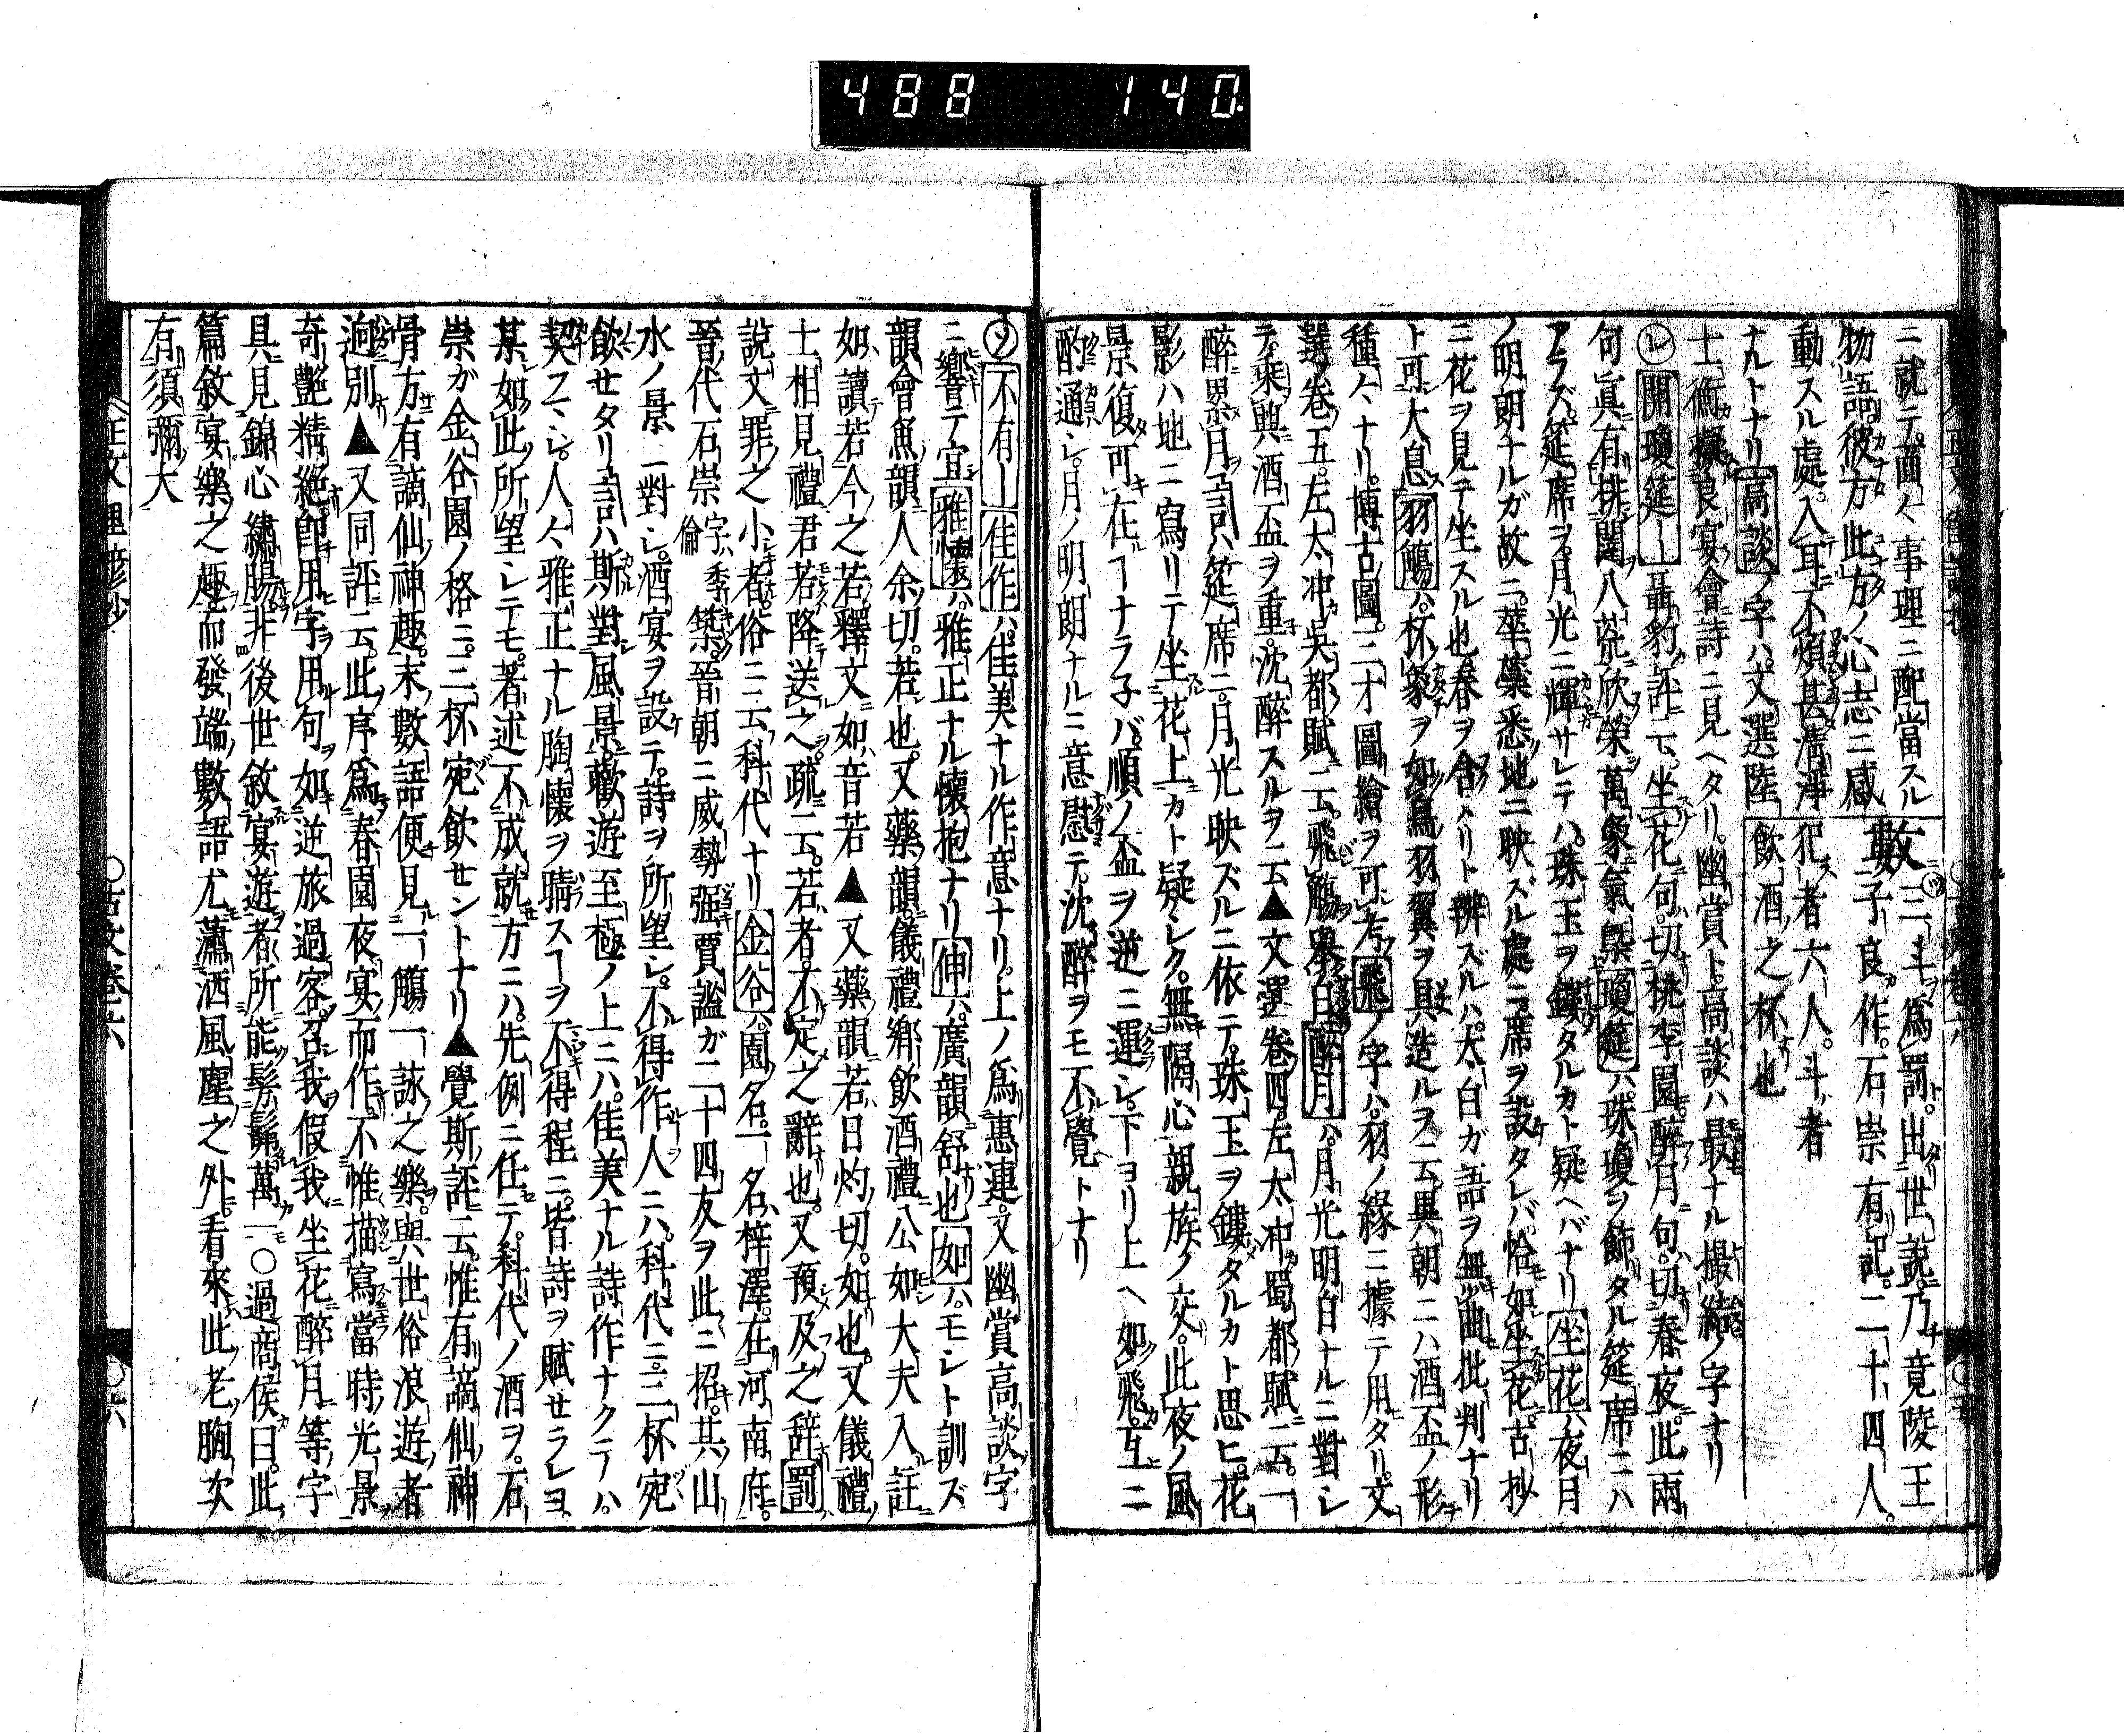 488 140
ニ就テ。面〱事理ニ配當スル
物語。彼方此方ノ心志ニ感
動スル處。入耳不煩甚清淨
ナルトナリ高談ノ字ハ。文選陸
數三斗爲罰。出世說。乃竟陵王
子良作。石崇有記。二十四人。
犯者六人。斗者
飲酒之杯也
士衡擬良宴會詩ニ見ヘタリ。幽賞ト。高談ハ最ナル撮結ノ字ナリ
㋹開瓊筵―聶豹評云。坐花句。切桃李園。醉月句。切春夜。此兩
句眞有排闔八荒欣榮萬象氣槩瓊筵ハ。珠瓊ヲ飾タル筵席ニハ
アラズ。筵席ヲ。月光ニ輝サレテハ。珠玉ヲ鏤タルカト疑ヘバナリ坐花ハ夜月
ノ明朗ナルガ故ニ。萃藥悉地ニ映ズル處ニ席ヲ設タレバ。恰如坐花。古抄
ニ花ヲ見テ坐スル也春ヲ含メリト辨ズルハ。太白ガ語ヲ無曲批判ナリ
ト可大息羽觴ハ。杯象ヲ如鳥羽翼ヲ具造ルヲ云。異朝ニハ酒盃ノ形
種〱ナリ。博古圖。三才圖繪ヲ可考飛ノ字ハ。羽ノ緣ニ據テ用タリ。文
選ノ卷五。左太冲吳都賦ニ云。飛觴舉白醉月ハ。月光明白ナルニ對シ
テ。乘興酒盃ヲ重。沈醉スルヲ云▲文選卷四。左太冲蜀都賦ニ云。一
醉累月言ハ筵席ニ。月光映ズルニ依テ。珠玉ヲ鏤タルカト思ヒ。花
影ハ地ニ寫リテ坐花上カト疑シク。無隔心親族ノ交。此夜ノ風
景復可在ヿナラ子バ。順ノ盃ヲ逆ニ運シ。下ヨリ上ヘ如飛。互ニ
酌通シ。月ノ明朗ナルニ意慰テ。沈醉ヲモ不覺トナリ
㋞不有―佳作ハ。佳美ナル作意ナリ。上ノ爲惠連。又幽賞高談字
ニ響テ宜雅懷ハ。雅正ナル懷抱ナリ伸ハ。廣韻舒也如ハ。モシト訓ズ
韻會魚韻。人余切。若也。又藥韻。儀禮鄉飲酒禮。公如大夫入。註
如讀若今之若。釋文。如音若▲又藥韻。若日灼切。如也。又儀禮。
士相見禮。君若降送之。疏云。若者。不定之辭也。又預及之辭罰ハ
說文罪之小者。俗ニ云科代ナリ金谷ハ。園名。一名梓澤。在河南府。
晉ノ代石崇字ハ季倫築。晉朝ニ威勢强賈謐ガ二十四友ヲ此ニ招。其山
水ノ景一對シ。酒宴ヲ設テ。詩ヲ所望シ。不得作人ニハ。科代ニ。三杯宛
飲セタリ言ハ斯對風景。歡遊至極ノ上ニハ。佳美ナル詩作ナクテハ。
契フマシ。人〱雅正ナル胸懷ヲ晴スヿヲ不得程ニ。皆詩ヲ賦セラレヨ。
某如此所望シテモ。著述不成就方ニハ。先例ニ任テ。科代ノ酒ヲ。石
崇ガ金谷園ノ格ニ。三杯宛飲セントナリ▲覺斯評云。惟有謫仙神
骨方有謫仙神趣。末數語便見一觴一詠之樂。與世俗浪遊者
逈別▲又同評云。此序爲春園夜宴而作。不惟描寫當時光景
奇艷精絕。卽用字用句。如逆旅過客召我假我坐花醉月等字
具見錦心繡腸。非後世敘宴遊者。所能髣髴萬一○過商侯曰。此
篇敘宴樂之趣。而發端數語尤瀟洒風塵之外。看來此老胸次
有須彌大
古文卷六